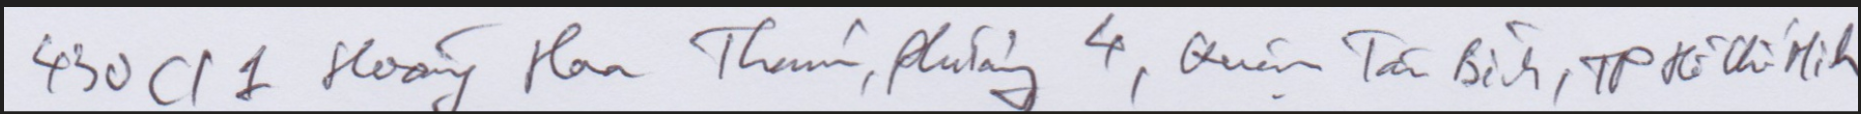 430 C11 Hoàng Hoa Thám, Phường 4, Quận Tân Bình, TP Hồ Chí Minh